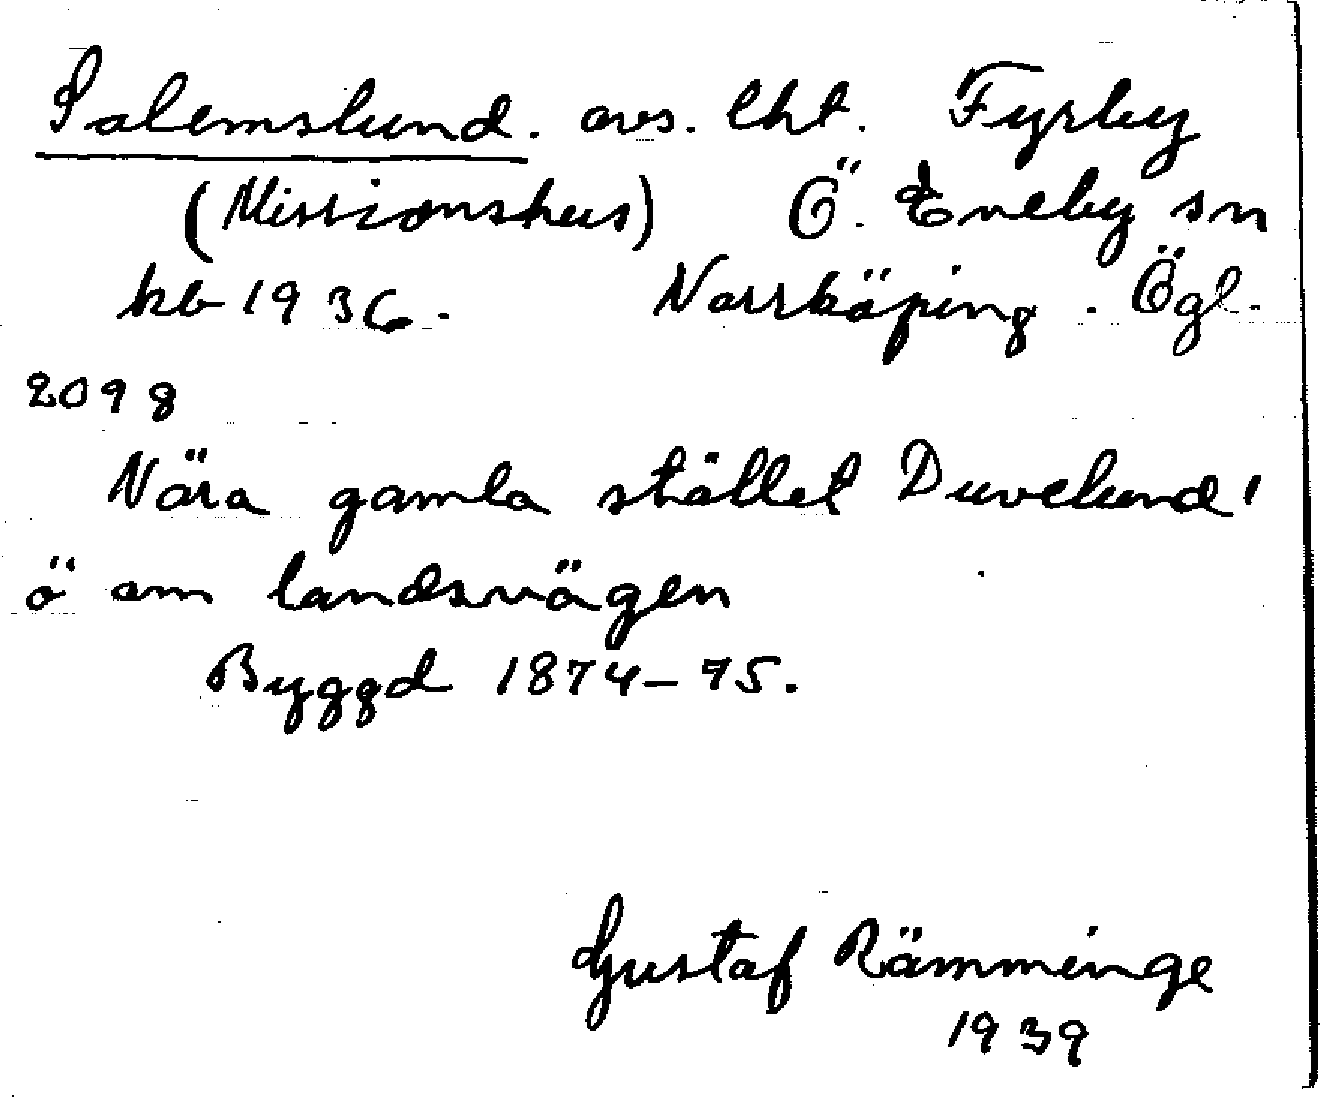 Salemslund. avs. lht. Fyrby
(Missionshus) Ö. Eneby sn
kb 1936. Norrköping. Ögl.
2098
Nära gamla stället Duvelund'
ö om landsvägen
Byggd 1874-75.
Gustaf Rämminge
1939